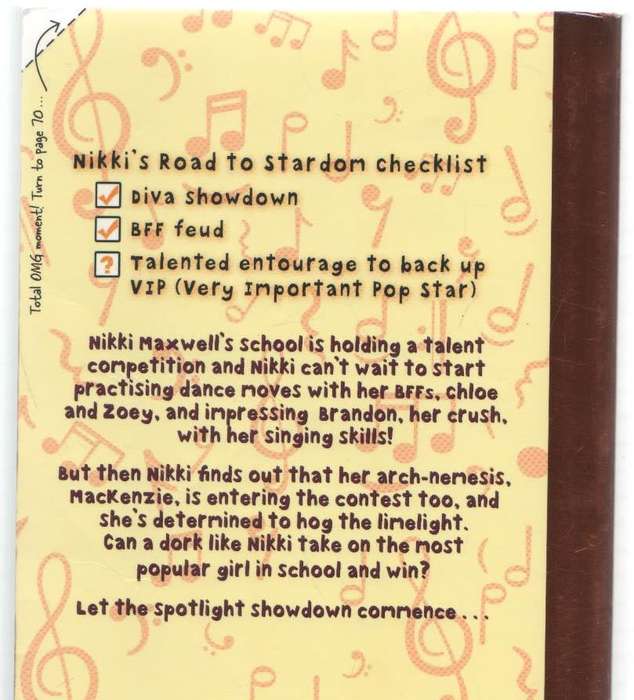 Total OMG moment! Turn to page 70...
Nikki's Road to Stardom checklist
Diva showdown
BFF feud
? Talented entourage to back up
VIP (Very Important Pop Star)
Nikki Maxwell's school is holding a talent
competition and Nikki can't wait to start
practising dance moves with her BFFs, Chloe
and Zoey, and impressing Brandon, her crush,
with her singing skills!
But then Nikki finds out that her arch-nemesis,
MacKenzie, is entering the contest too, and
she's determined to hog the limelight.
Can a dork like Nikki take on the most
popular girl in school and win?
Let the spotlight showdown commence...